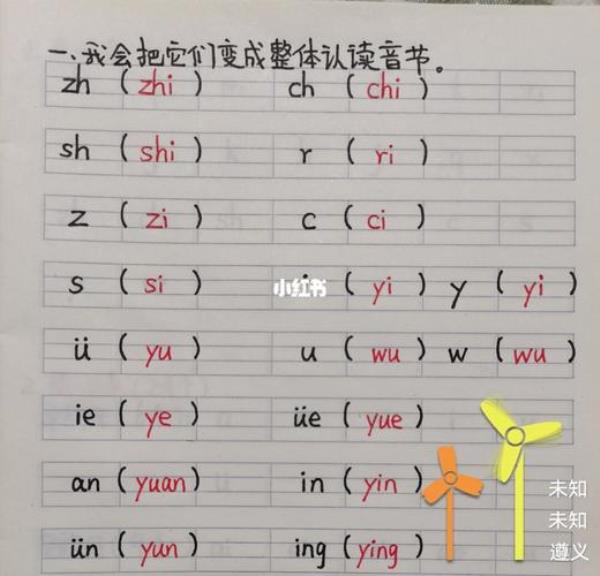 一、我会把它们变成整体认读音节。
zh ( zhi ) ch ( chi )
sh ( shi ) r ( ri )
z ( zi ) c ( ci )
s ( si ) 小红书 ( yi ) y ( yi )
ü ( yu ) u ( wu ) w ( wu )
ie ( ye ) üe ( yue )
an ( yuan ) in ( yin )
ün ( yun ) ing ( ying )
未知
未知
遵义